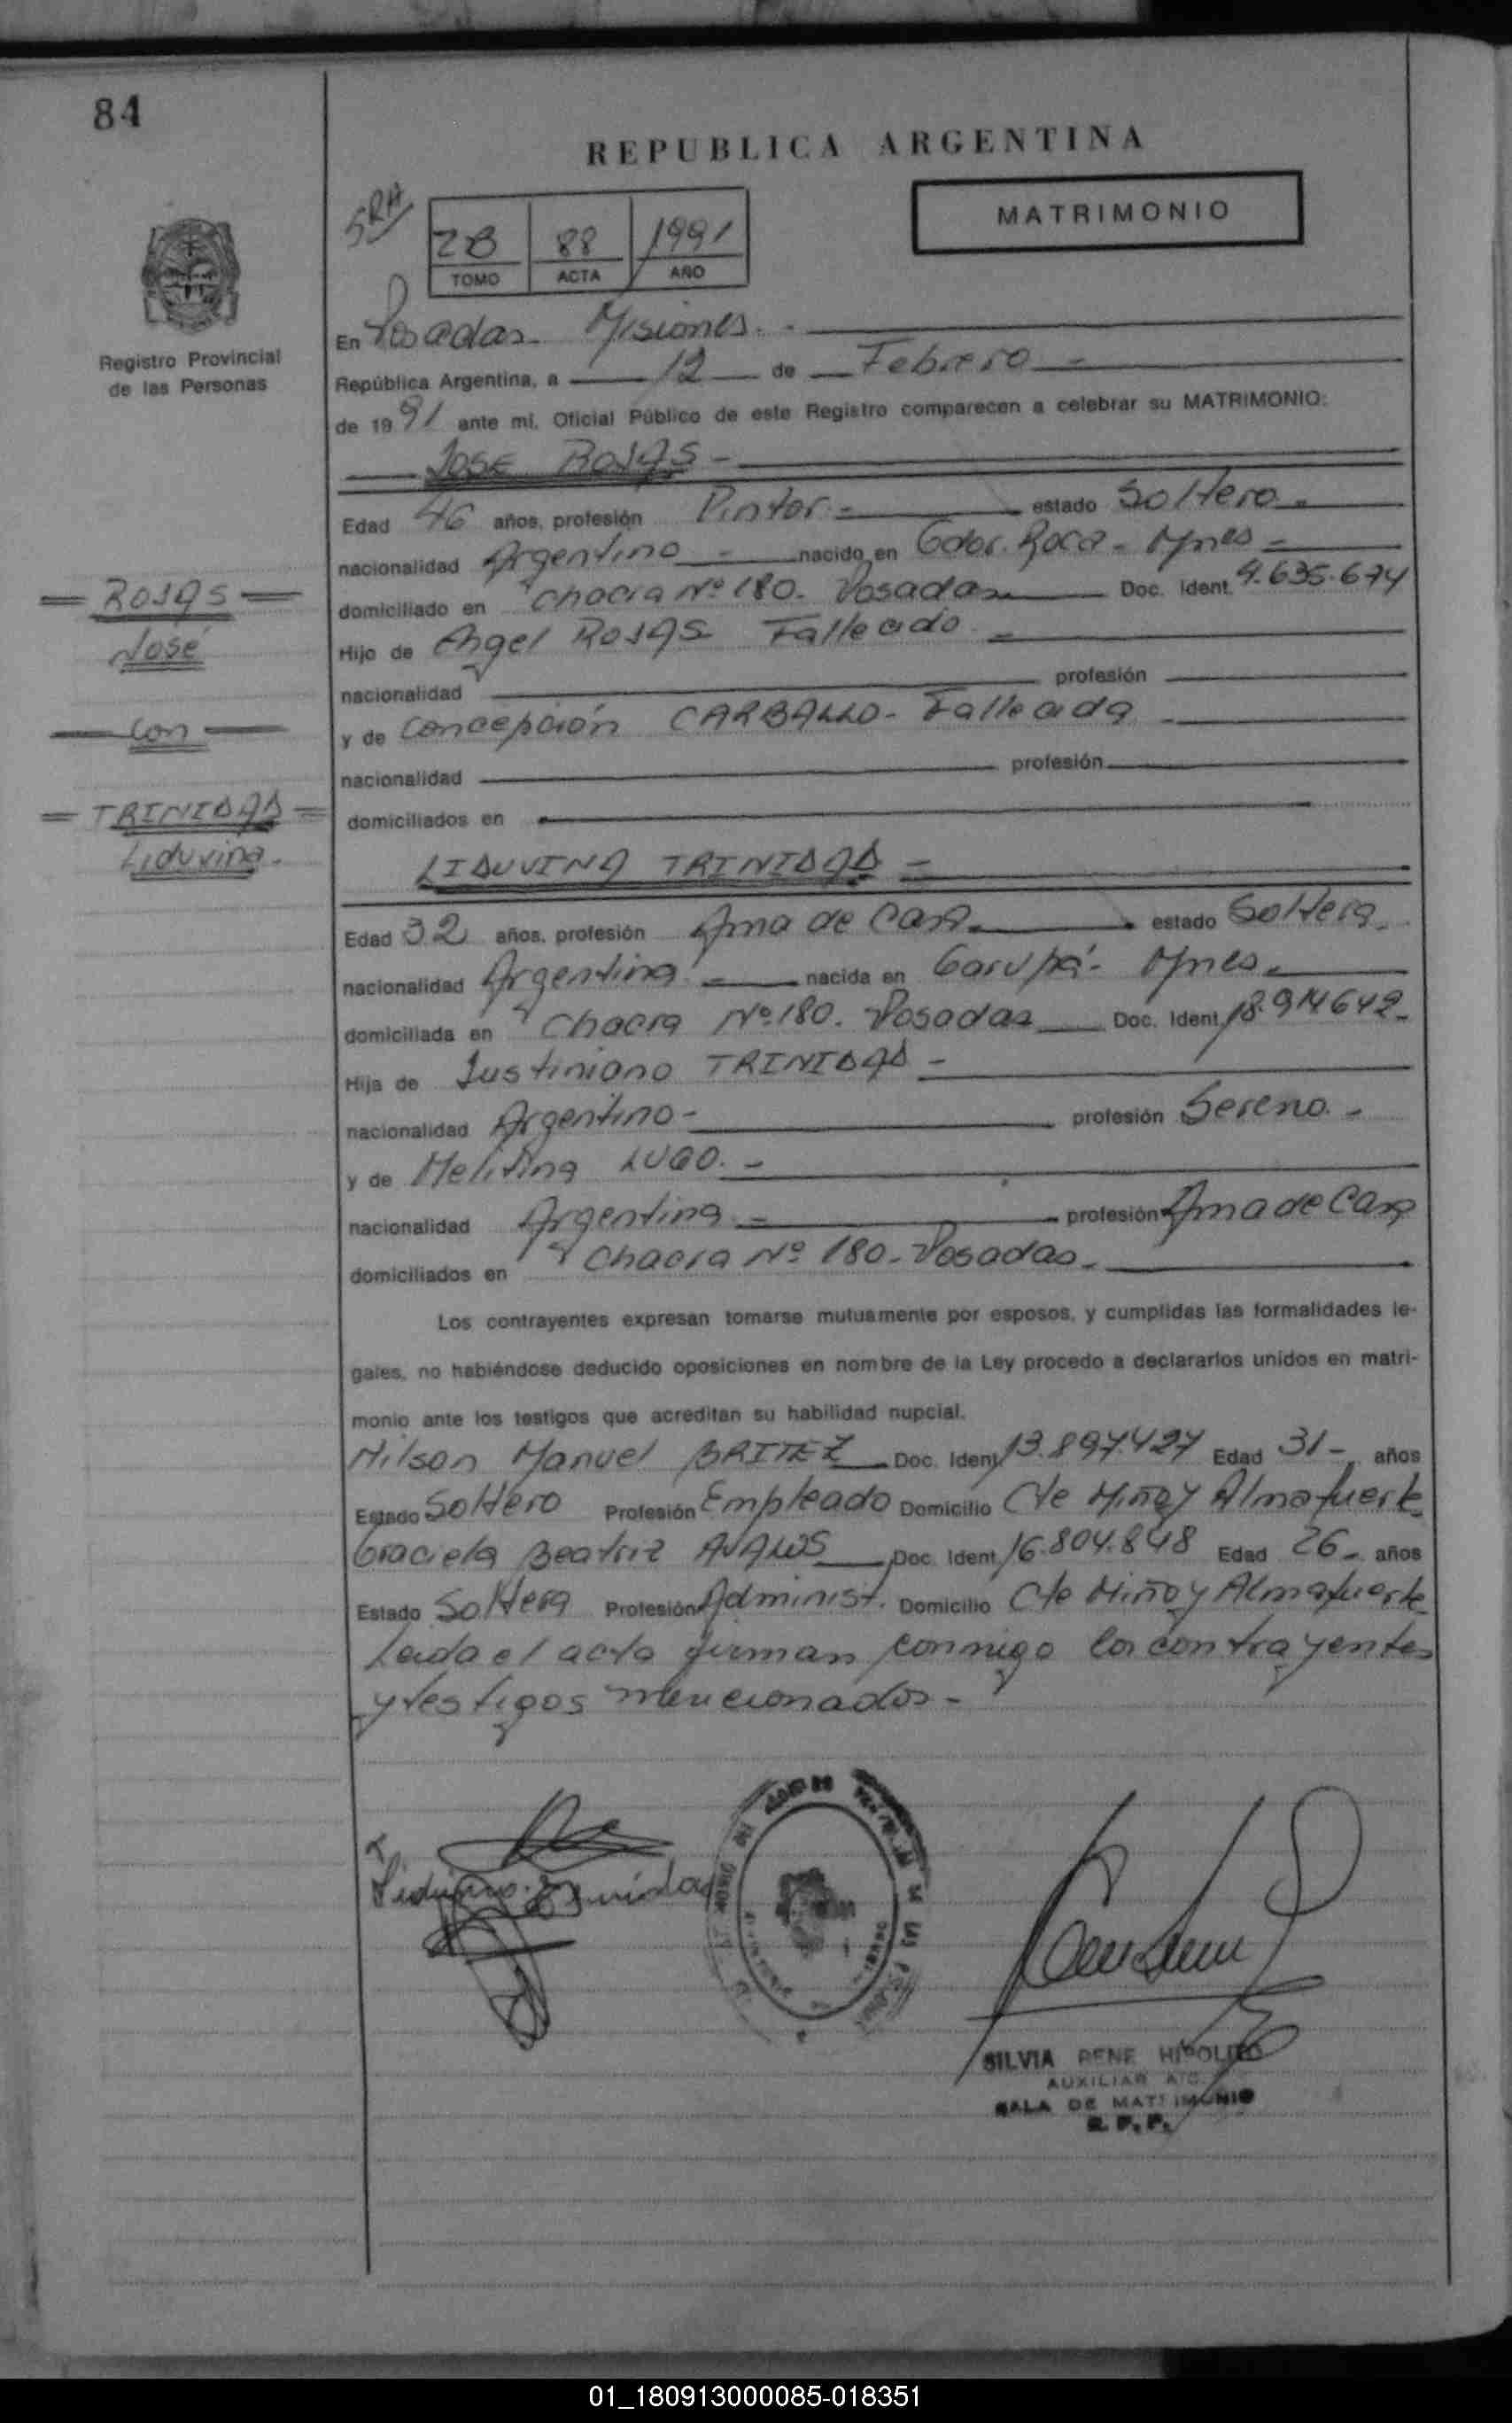 84
REPUBLICA ARGENTINA
MATRIMONIO
SRA
2B 88 1991
TOMO ACTA AÑO
Registro Provincial
de las Personas
En Posadas - Misiones. -
República Argentina, a 12 de Febrero -
de 1991 ante mí, Oficial Público de este Registro comparecen a celebrar su MATRIMONIO:
JOSE ROJAS -
Edad 46 años, profesión Pintor - estado Soltero -
nacionalidad Argentino - nacido en Gdor. Roca - Mnes -
domiciliado en Chacra Nº 180. Posadas Doc. Ident. 9.635.674
Hijo de Angel ROJAS Fallecido -
nacionalidad profesión
y de Concepción CARBALLO - Fallecida -
nacionalidad profesión
domiciliados en
= ROJAS =
José
— con —
= TRINIDAD =
Liduvina.
LIDUVINA TRINIDAD =
Edad 32 años, profesión Ama de Casa. estado Soltera.
nacionalidad Argentina - nacida en Garupá - Mnes.
domiciliada en Chacra Nº 180. Posadas Doc. Ident. 18.914642-
Hija de Justiniano TRINIDAD -
nacionalidad Argentino - profesión Sereno. -
y de Melitina LUGO. -
nacionalidad Argentina - profesión Ama de Casa
domiciliados en Chacra Nº 180 - Posadas.
Los contrayentes expresan tomarse mutuamente por esposos, y cumplidas las formalidades le-
gales, no habiéndose deducido oposiciones en nombre de la Ley procedo a declararlos unidos en matri-
monio ante los testigos que acreditan su habilidad nupcial.
Nilson Manuel BRITEZ Doc. Ident. 13.897.427 Edad 31 - años
Estado Soltero Profesión Empleado Domicilio Cte Miño y Almafuerte
Graciela Beatriz AVALOS Doc. Ident. 16.804.848 Edad 26 - años
Estado Soltera Profesión Administ. Domicilio Cte Miño y Almafuerte
Leida el acta firman conmigo los contrayentes
y testigos mencionados -
SILVIA RENE HIPOLITO
AUXILIAR
SALA DE MATRIMONIO
R. P. P.
01_180913000085-018351